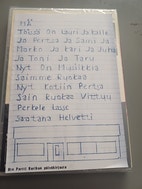 Tässä On Lauri Ja Kalle
Ja Pertsa Ja Sami Ja
Ja Kari Ja Juha
Ja Toni Ja Taru
Nyt On Musiikkia
Saimme Ruokaa
Nyt Kotiin Pertsa
Sain Ruokaa Vittuu
Perkele Lause
Saatana Helvetti